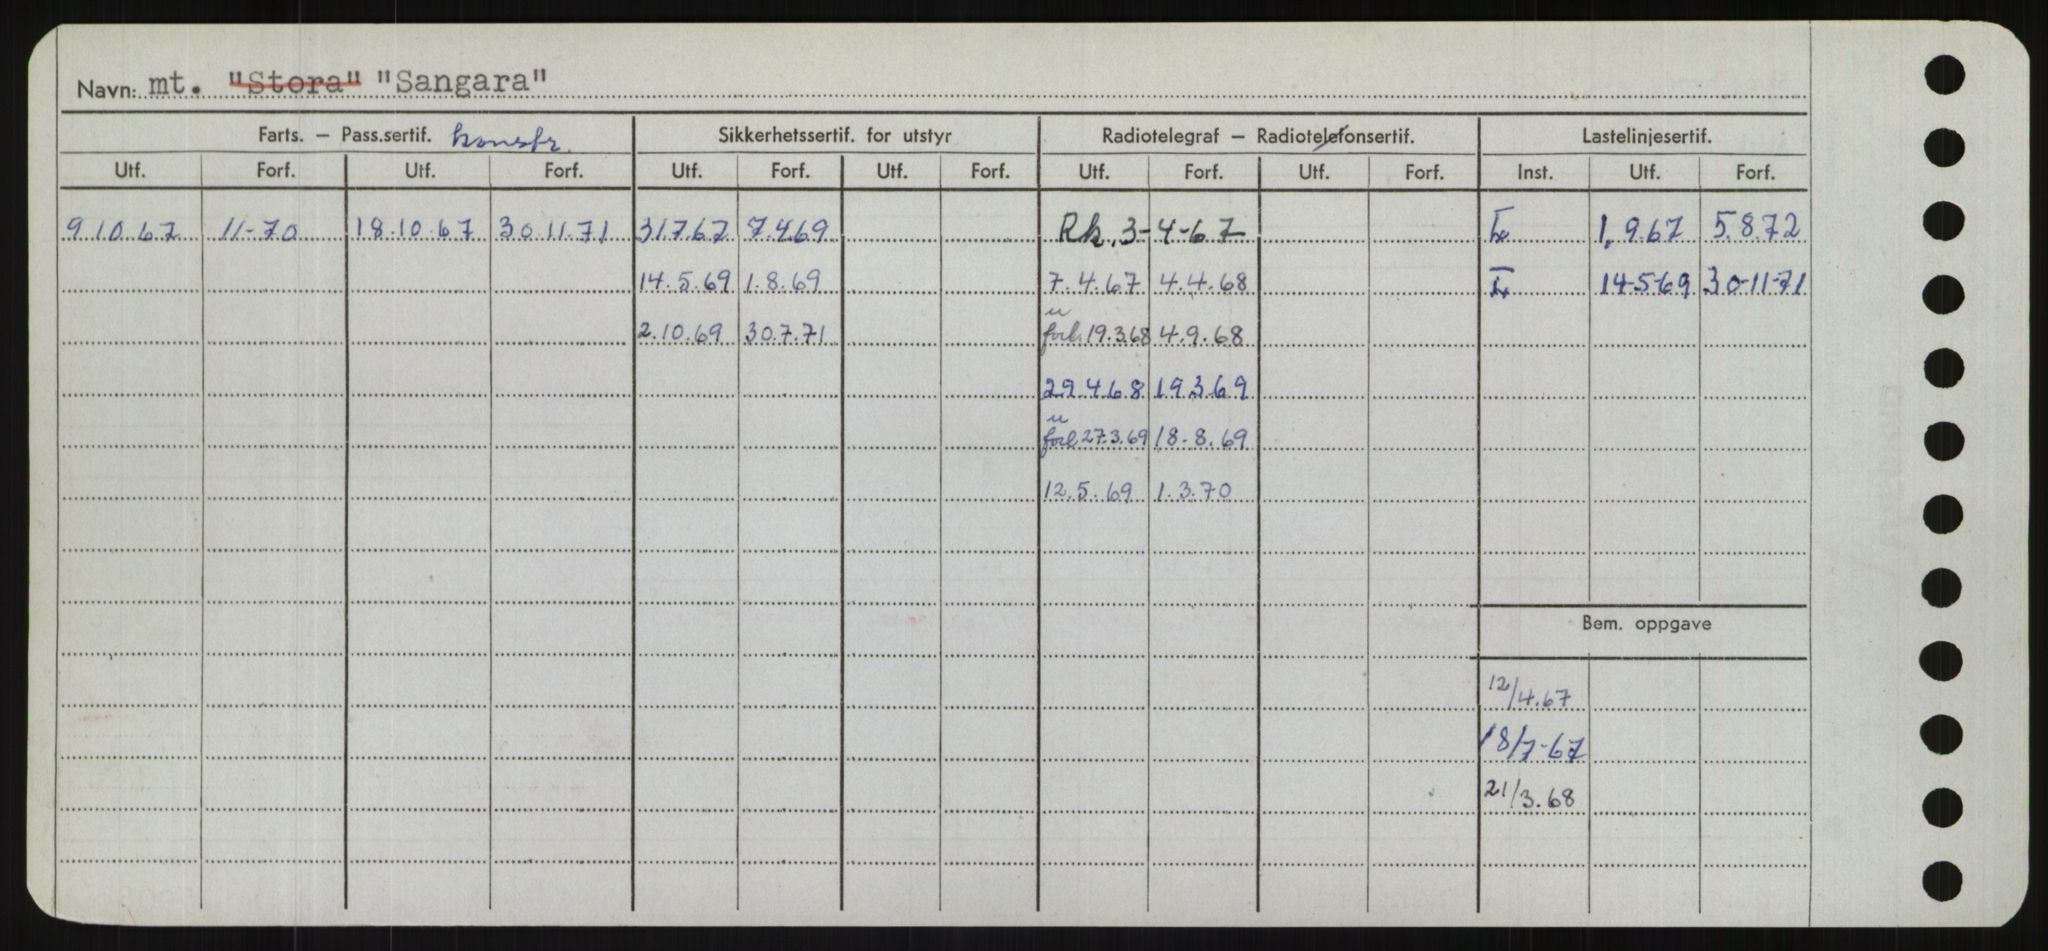 Navn: mt. "Stora" "Sangara"
Farts. – Pass.sertif. konstr. Sikkerhetssertif. for utstyr Radiotelegraf – Radiotelefonsertif. Lastelinjesertif.
Utf. Forf. Utf. Forf. Utf. Forf. Utf. Forf. Utf. Forf. Utf. Forf. Inst. Utf. Forf.
9 10 67 11-70 18.10.67 30.11.71 31.7.67 7.4.69 Rk. 3-4-67 1.9.67 5.8.72
14.5.69 1.8.69 7.4.67 4.4.68 14-5-69 30-11-71
2.10.69 30.7.71 forl. 19.3.68 4.9.68
29.4.68 19.3.69
forl. 27.3.69 18.8.69
12.5.69 1.3.70
Bem. oppgave
12/4.67
18/7-67
21/3.68